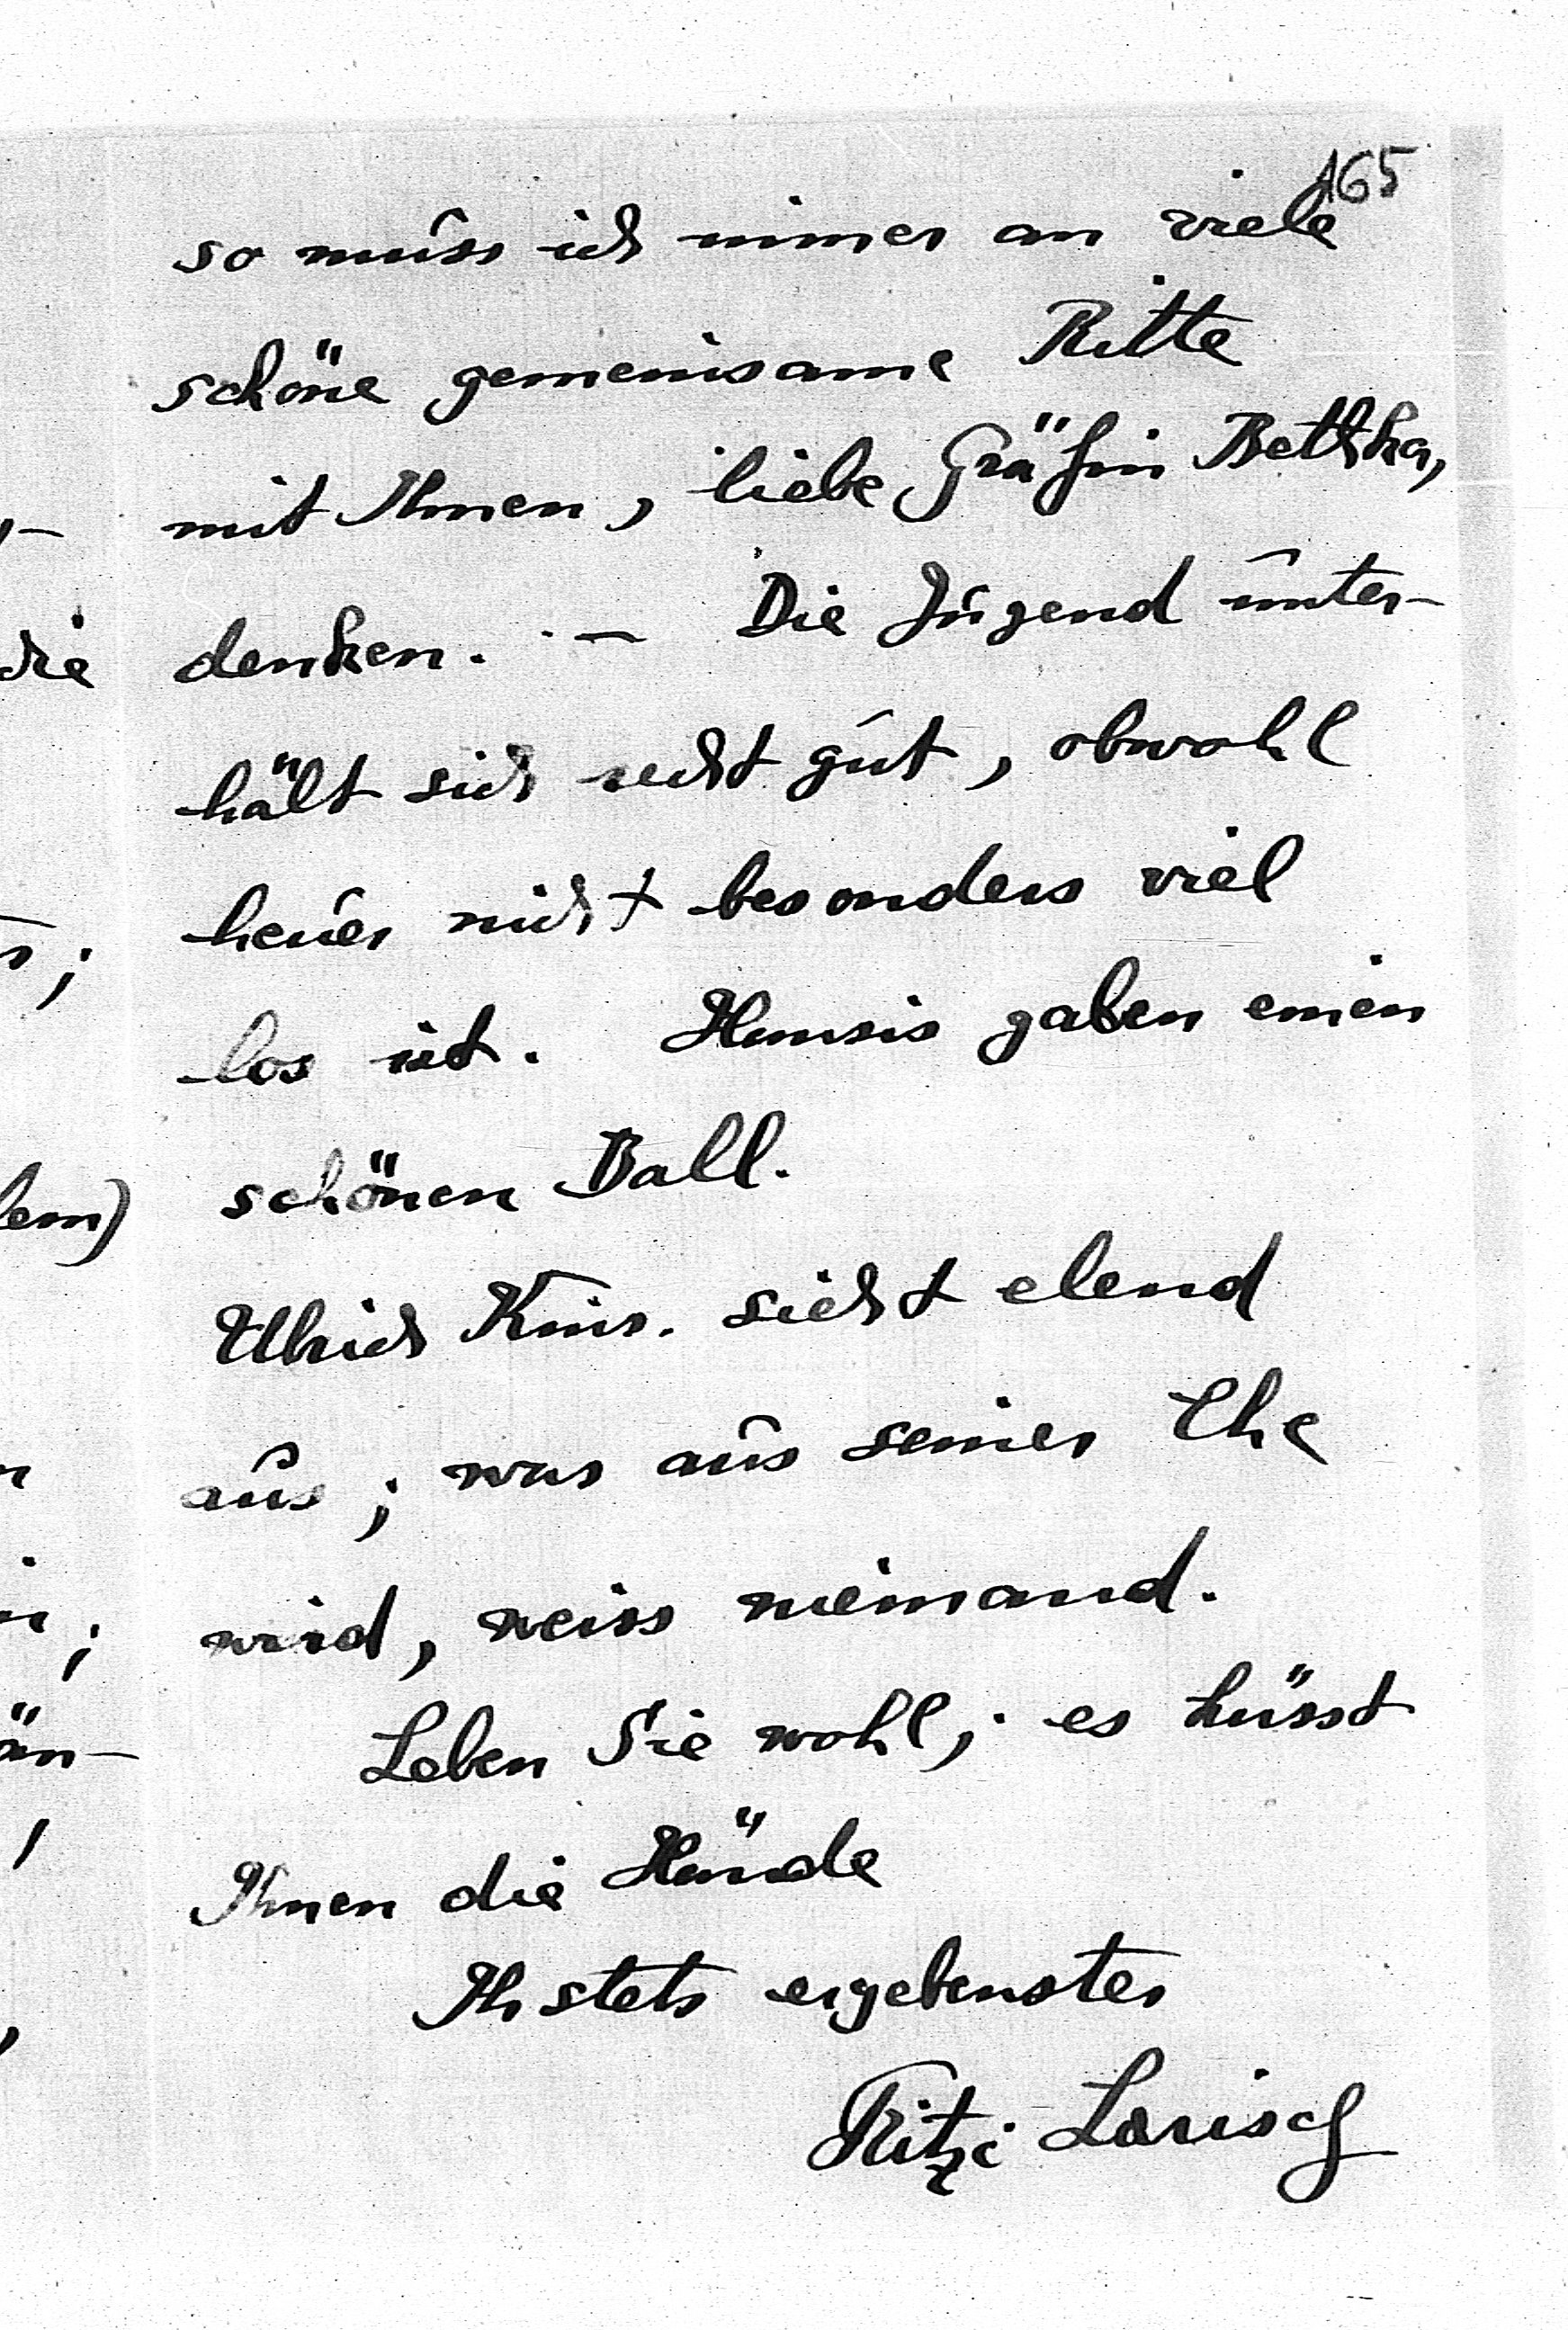 165
so muss ich immer an viele
schöne gemeinsame Ritte
mit Ihnen, liebe Gräfin Bethka,
denken. — Die Jugend unter-
hält sich recht gut, obwohl
heuer nicht besonders viel
los ist. Hansis gaben einen
schönen Ball.
Ulrich Kins. sieht elend
aus; was aus seiner Ehe
wird, weiss niemand.
Leben Sie wohl; es küsst
Ihnen die Hände
Ihr stets ergebenster
Fritzi Larisch
die
lem)
än-